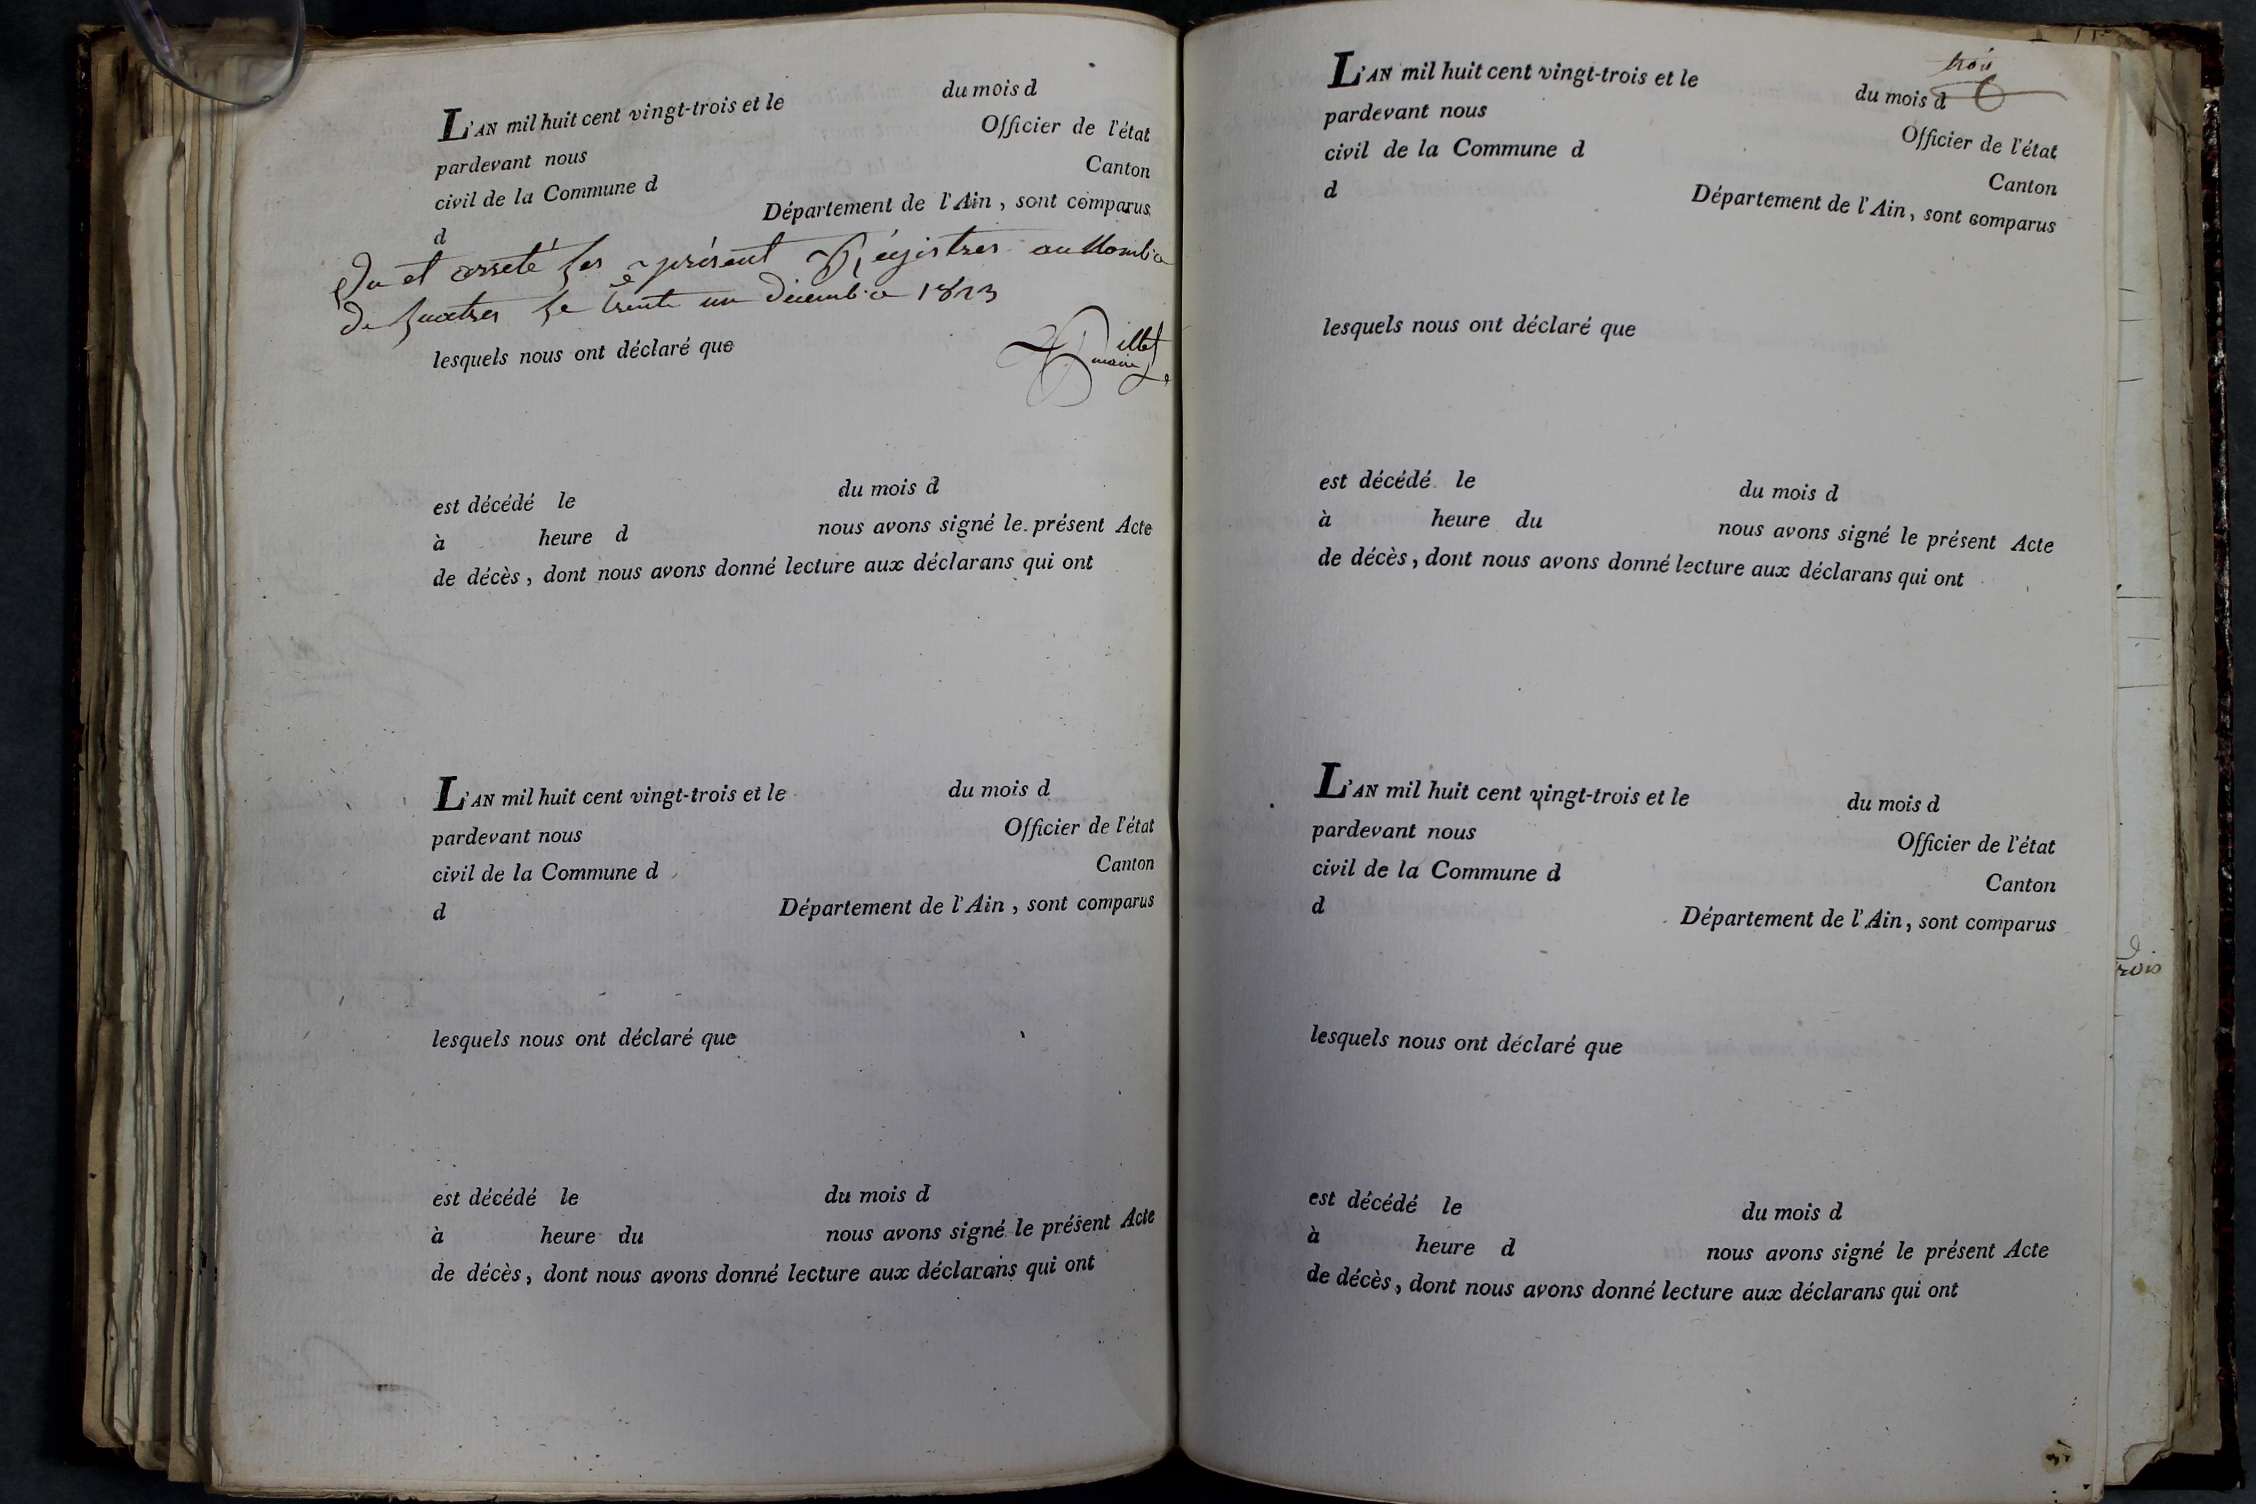 L'AN mil huit cent vingt-trois et le du mois d
pardevant nous Officier de l'état
civil de la Commune d Canton
d Département de l'Ain, sont comparus
et arreté les présent Régistres au Nombre
de quatres le trente un décembre 1823
lesquels nous ont déclaré que
maire
est décédé le du mois d
à heure d nous avons signé le présent Acte
de décès, dont nous avons donné lecture aux déclarans qui ont
L'AN mil huit cent vingt-trois et le du mois d
pardevant nous Officier de l'état
civil de la Commune d Canton
d Département de l'Ain, sont comparus
lesquels nous ont déclaré que
est décédé le du mois d
à heure du nous avons signé le présent Acte
de décès, dont nous avons donné lecture aux déclarans qui ont
trois
L'AN mil huit cent vingt-trois et le du mois d
pardevant nous Officier de l'état
civil de la Commune d Canton
d Département de l'Ain, sont comparus
lesquels nous ont déclaré que
est décédé le du mois d
à heure du nous avons signé le présent Acte
de décès, dont nous avons donné lecture aux déclarans qui ont
L'AN mil huit cent vingt-trois et le du mois d
pardevant nous Officier de l'état
civil de la Commune d Canton
d Département de l'Ain, sont comparus
lesquels nous ont déclaré que
est décédé le du mois d
à heure d nous avons signé le présent Acte
de décès, dont nous avons donné lecture aux déclarans qui ont